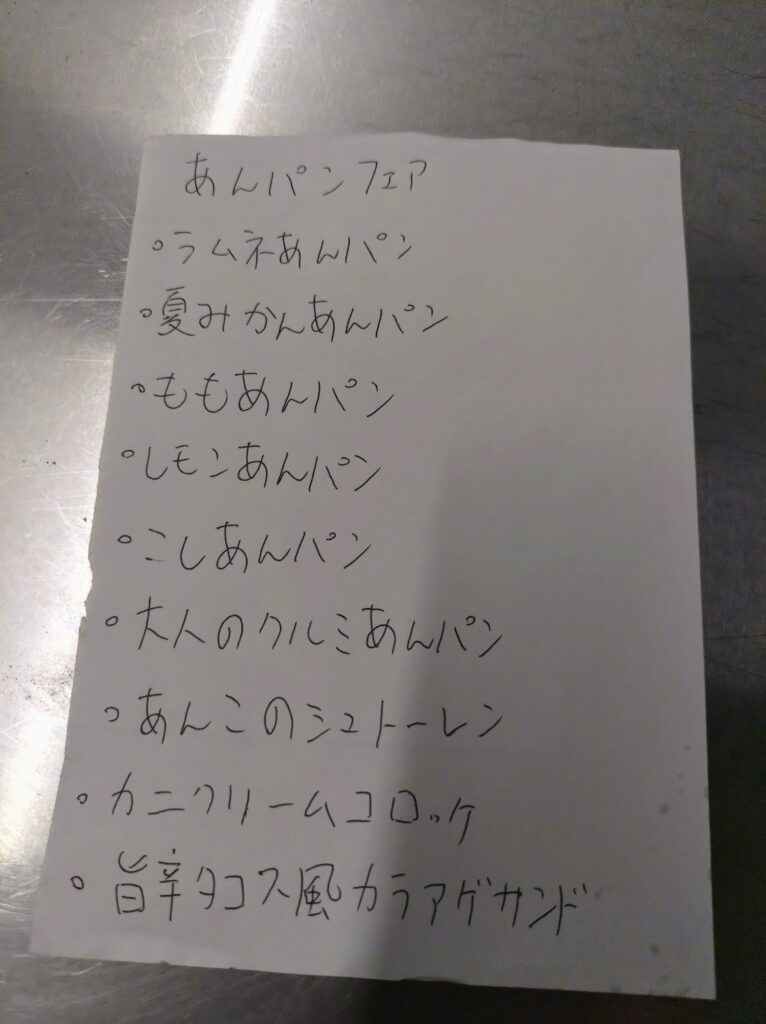 あんパンフェア
。ラムネあんパン
。夏みかんあんパン
。ももあんパン
。レモンあんパン
。こしあんパン
。大人のクルミあんパン
。あんこのシュトーレン
。カニクリームコロッケ
。旨辛タコス風カラアゲサンド